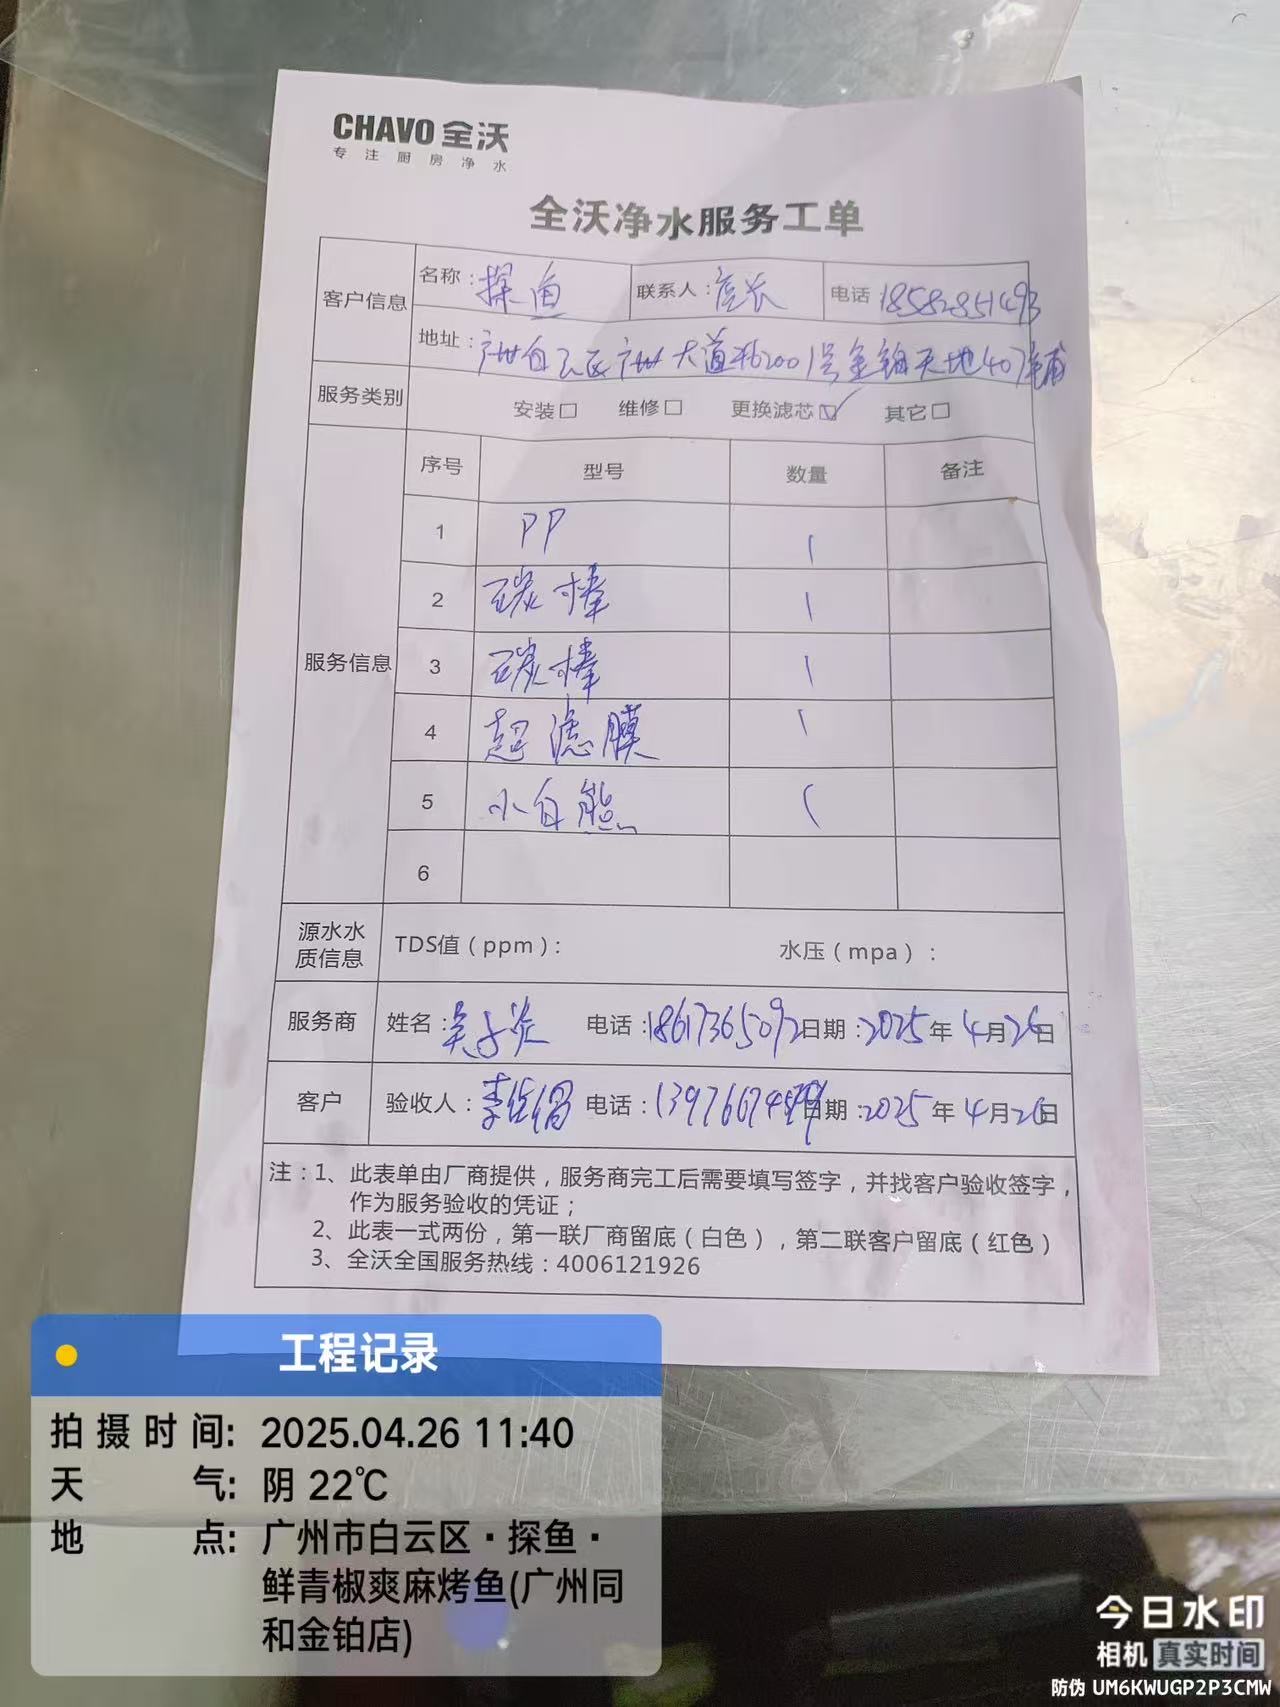 CHAVO 全沃
专注厨房净水
全沃净水服务工单
客户信息 名称：探鱼 联系人：店长 电话 18582851493
地址：广州白云区广州大道北2001号金铂天地407铺
服务类别 安装□ 维修□ 更换滤芯☑ 其它□
服务信息 序号 型号 数量 备注
1 PP 1
2 碳棒 1
3 碳棒 1
4 超滤膜 1
5 小白熊 1
6
源水水质信息 TDS值（ppm）： 水压（mpa）：
服务商 姓名：吴子炎 电话：18617365092 日期：2025年4月26日
客户 验收人：李 电话： 日期：2025年4月26日
注：1、此表单由厂商提供，服务商完工后需要填写签字，并找客户验收签字，
作为服务验收的凭证；
2、此表一式两份，第一联厂商留底（白色），第二联客户留底（红色）
3、全沃全国服务热线：4006121926
工程记录
拍摄时间: 2025.04.26 11:40
天气: 阴 22℃
地点: 广州市白云区·探鱼·
鲜青椒爽麻烤鱼(广州同
和金铂店)
今日水印
相机 真实时间
防伪 UM6KWUGP2P3CMW